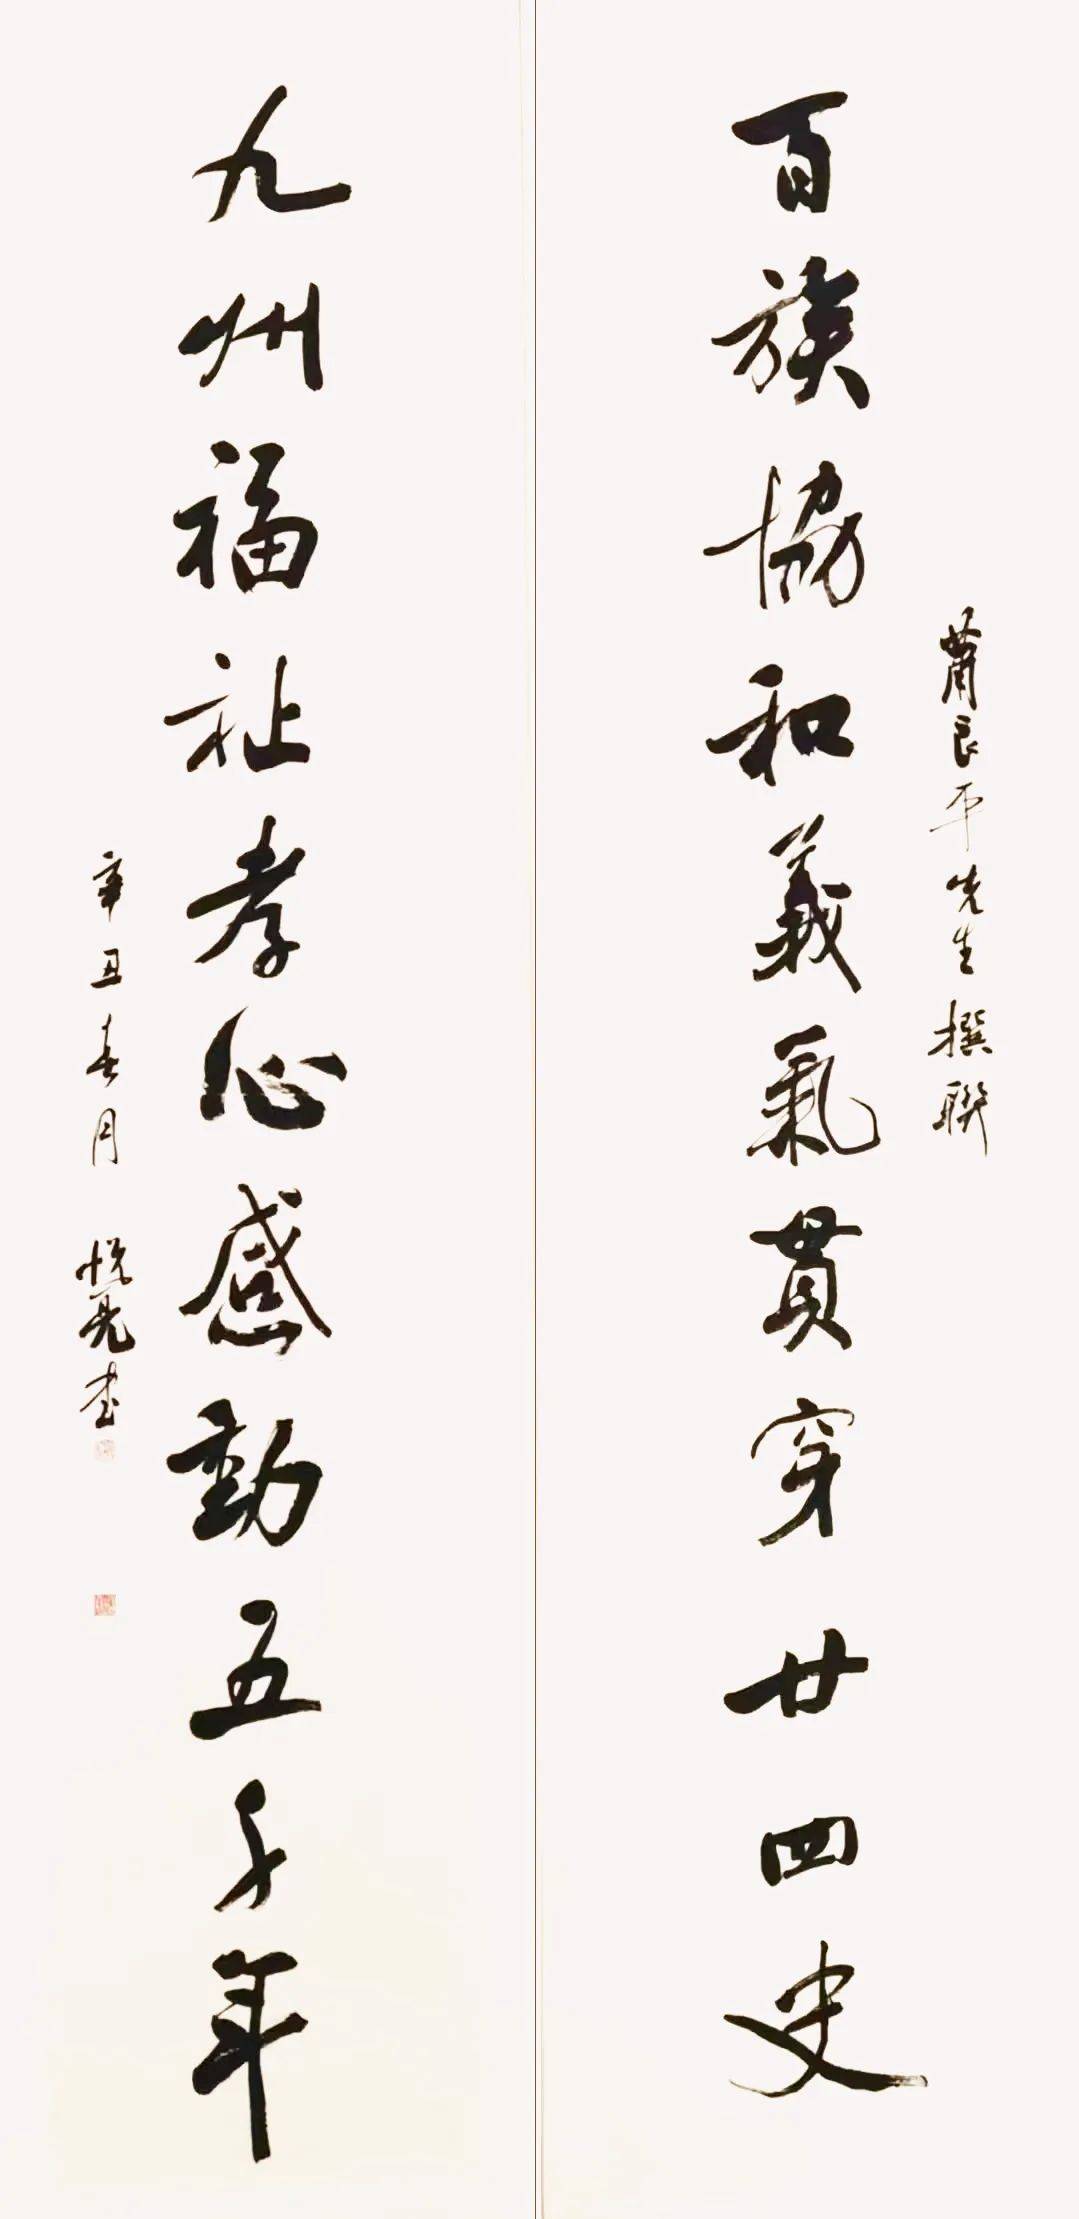 百族協和義氣貫穿廿四史
蕭良平先生撰聯
九州福祉孝心感動五千年
辛丑春月 悅亮書